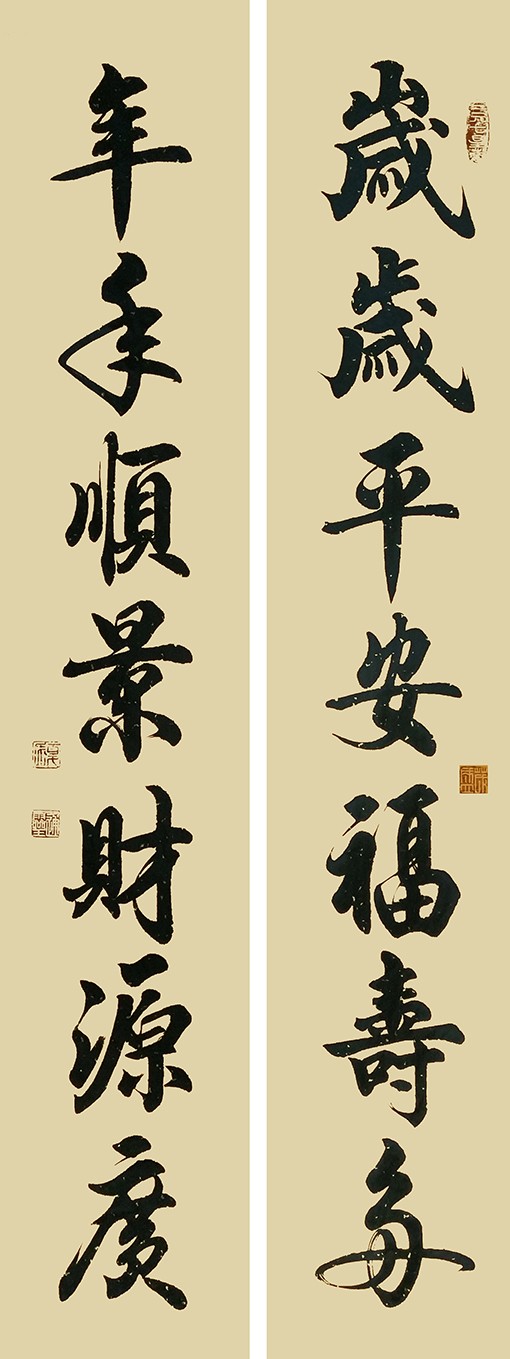 歲歲平安福壽多
年年順景財源廣